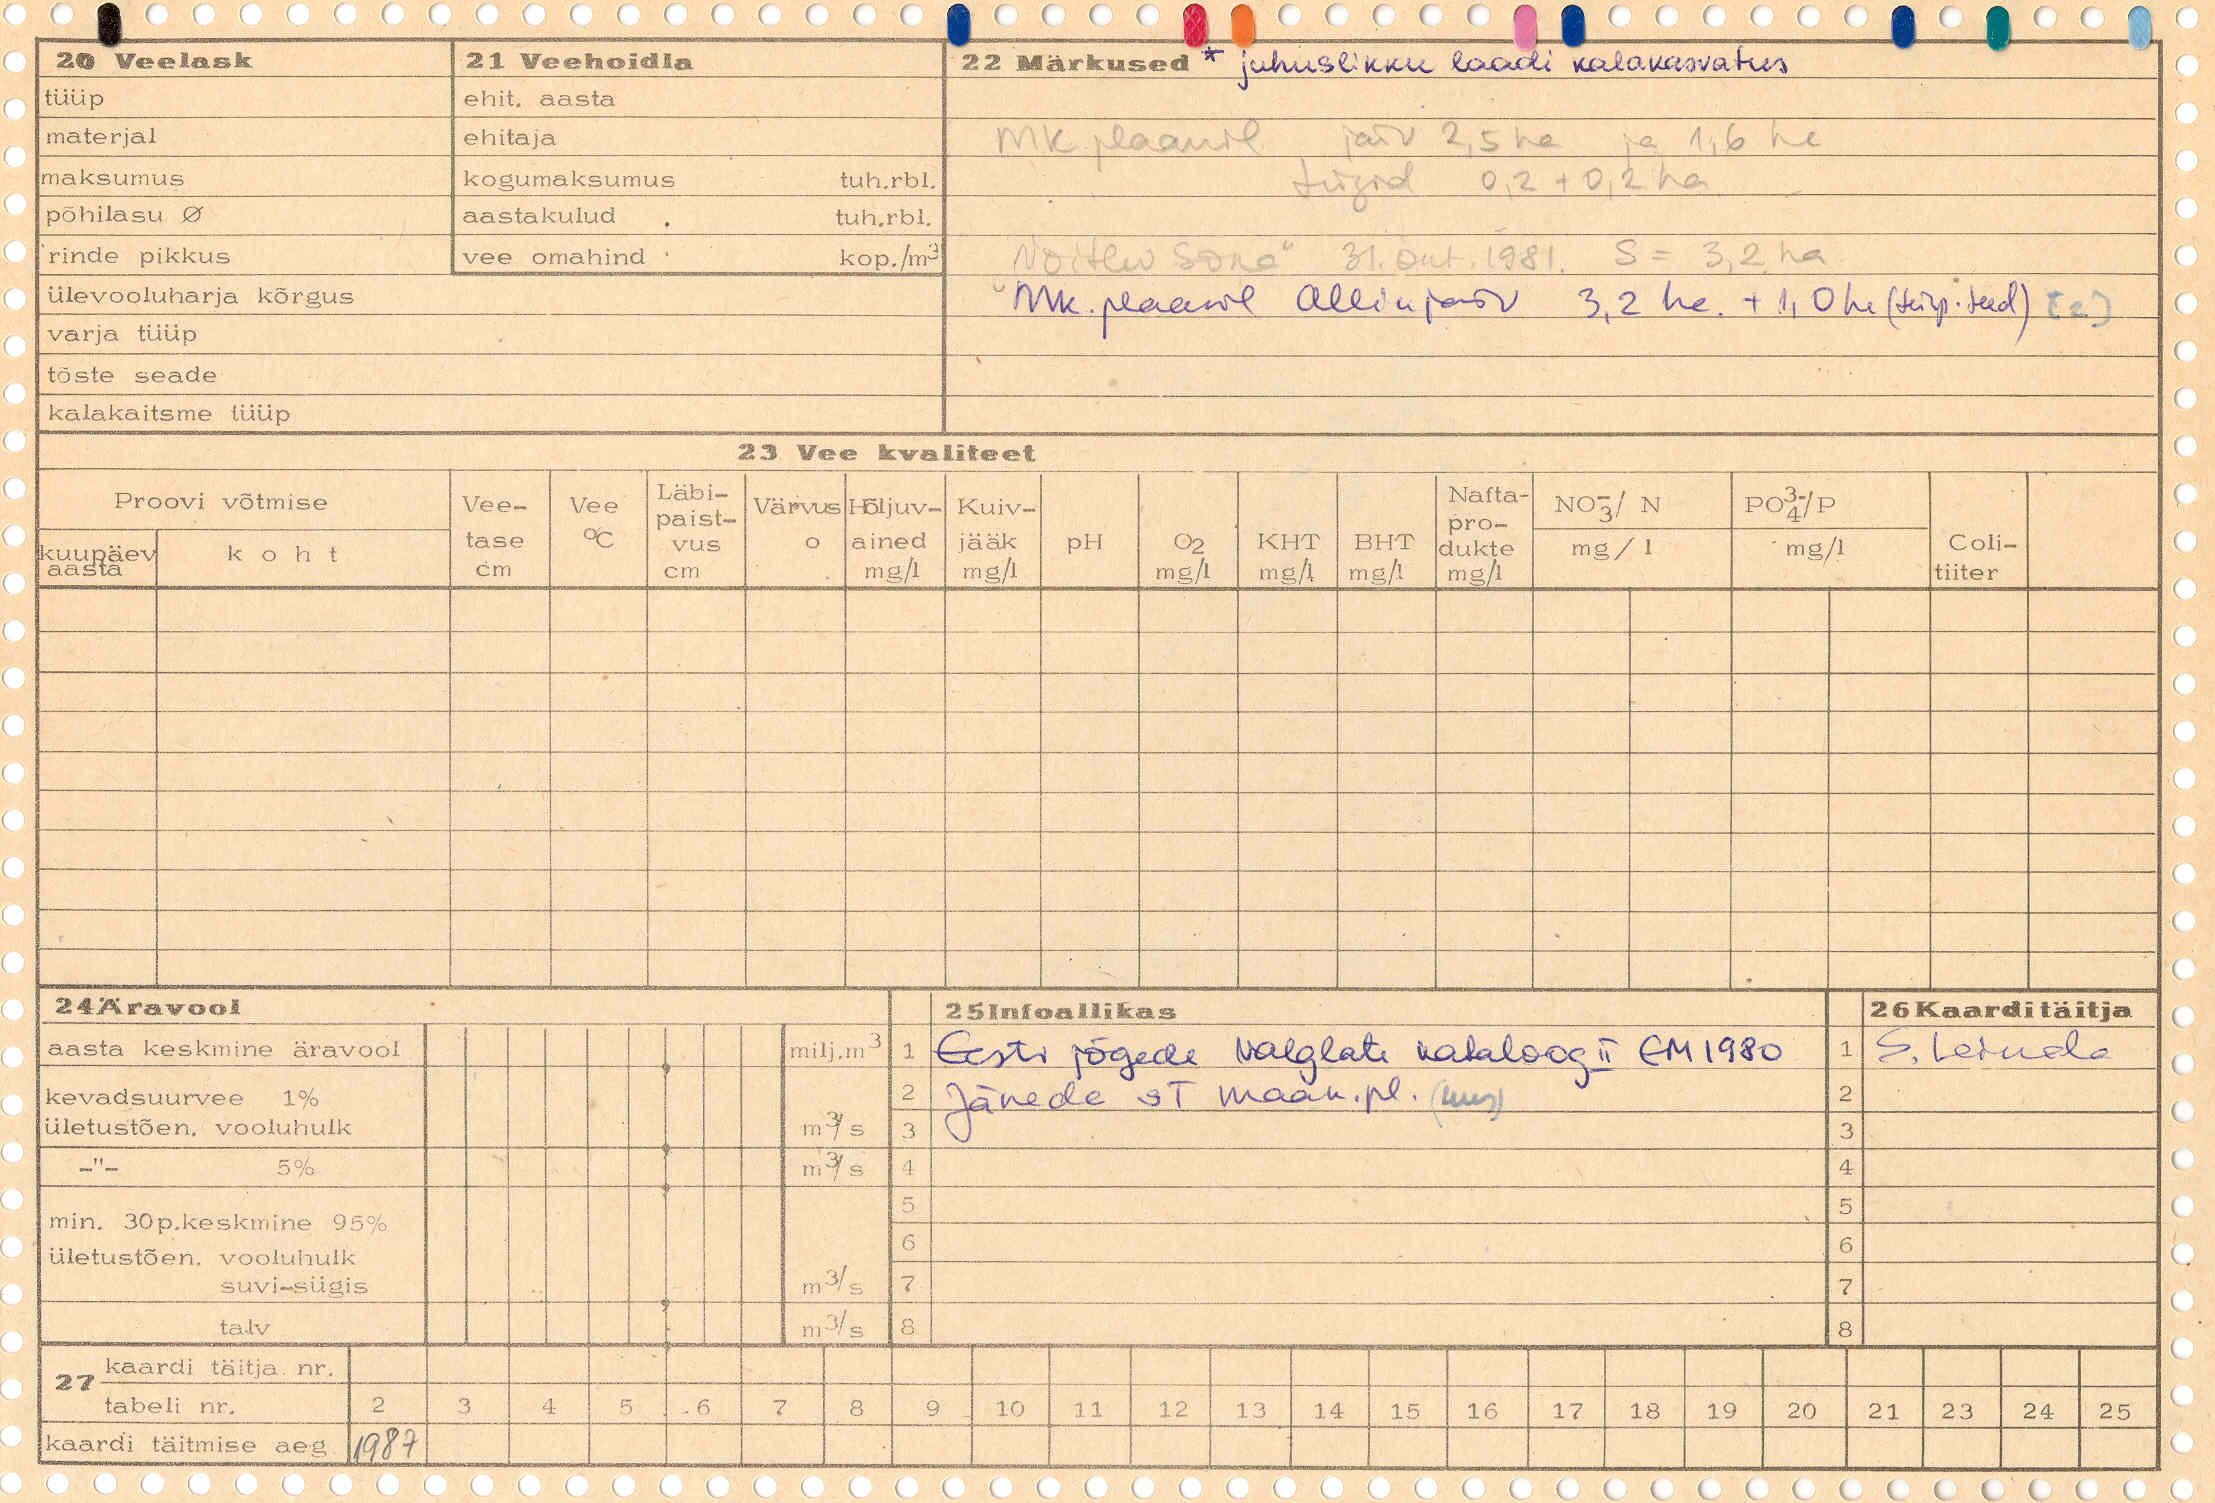 20 Veelask
tüüp
materjal
maksumus
põhilasu Ø
rinde pikkus
ülevooluharja kõrgus
varja tüüp
tõste seade
kalakaitsme tüüp
21 Veehoidla
ehit. aasta
ehitaja
kogumaksumus tuh.rbl.
aastakulud tuh.rbl.
vee omahind kop./m³
22 Märkused * juhuslikku laadi kalakasvatus
MK plaanil järv 2,5 ha ja 1,6 ha
tiigid 0,2 + 0,2 ha
"Võitlev Sõna" 31. okt. 1981. S = 3,2 ha
MK. plaanil Allikjärv 3,2 ha. + 1,0 ha [2]
23 Vee kvaliteet
Proovi võtmise
kuupäev aasta
koht
Vee-
tase
cm
Vee
°C
Läbi-
paist-
vus
cm
Värvus
o
Hõljuv-
ained
mg/l
Kuiv-
jääk
mg/l
pH
O2
mg/l
KHT
mg/l
BHT
mg/l
Nafta-
pro-
dukte
mg/l
NO3⁻/ N
mg/l
PO4³⁻/P
mg/l
Coli-
tiiter
24 Äravool
aasta keskmine äravool milj.m³
kevadsuurvee 1%
ületustõen. vooluhulk m³/s
-"- 5% m³/s
min. 30p.keskmine 95%
ületustõen. vooluhulk
suvi-sügis m³/s
talv m³/s
25 Infoallikas
1 Eesti jõgede valglate kataloog II EM 1980
2 Jänede ST maak.pl.
3
4
5
6
7
8
26 Kaarditäitja
1 S.
2
3
4
5
6
7
8
27 kaardi täitja nr.
tabeli nr. 2 3 4 5 6 7 8 9 10 11 12 13 14 15 16 17 18 19 20 21 23 24 25
kaardi täitmise aeg 1987